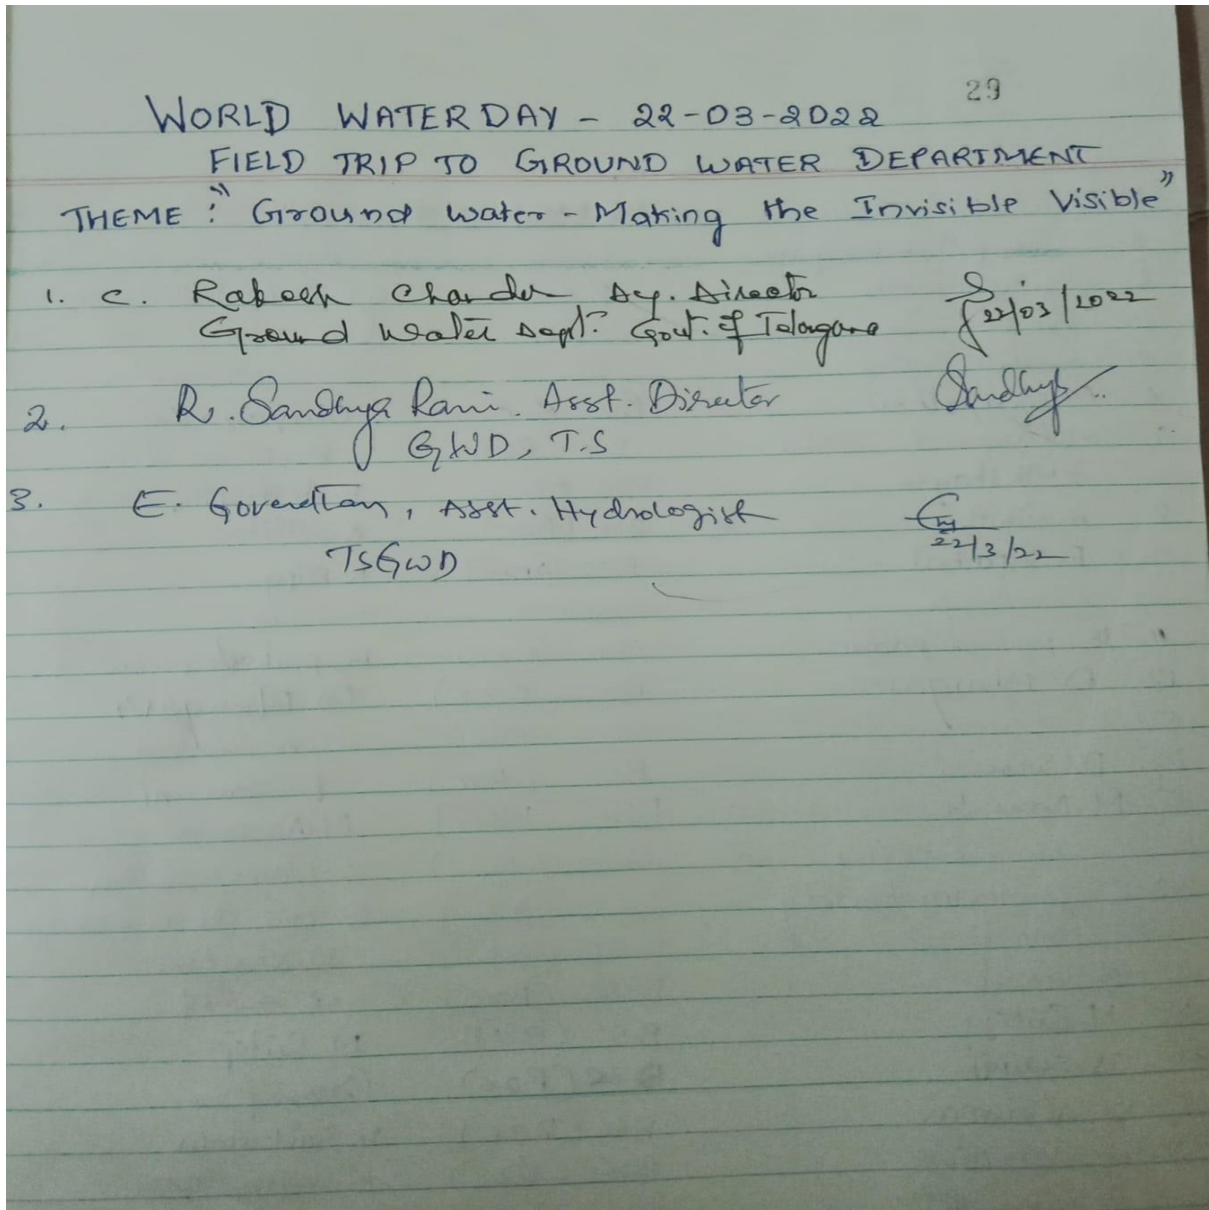 29
WORLD WATER DAY - 22-03-2022
FIELD TRIP TO GROUND WATER DEPARTMENT
THEME : "Ground water - Making the Invisible Visible"
1. C. Rakesh Chander Dy. Director
Ground Water Dept. Govt. of Telangana 22/03/2022
2. R. Sandhya Rani. Asst. Director Sandhya
GWD, T.S
3. E. , Asst. Hydrologist
TSGWD 22/3/22